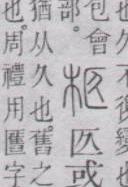 也久不復變也
包會
部。
柩匛或
猶从久也。舊之
也周禮用匶字